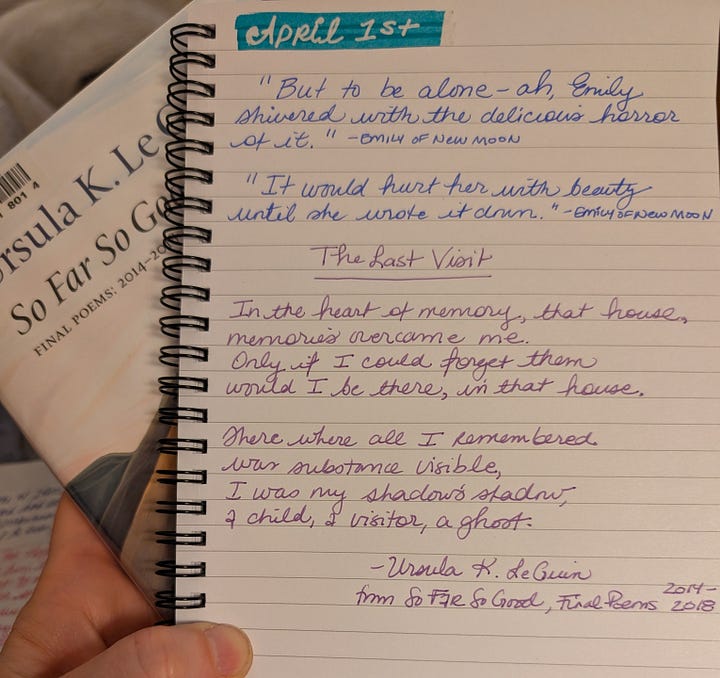 April 1st
"But to be alone - ah, Emily
shivered with the delicious horror
of it." - EMILY OF NEW MOON
"It would hurt her with beauty
until she wrote it down." - EMILY OF NEW MOON
The Last Visit
In the heart of memory, that house,
memories overcame me.
Only if I could forget them
would I be there, in that house.
There where all I remembered
was substance visible,
I was my shadow's shadow,
a child, a visitor, a ghost.
- Ursula K. LeGuin
from So Far So Good, Final Poems 2014-
2018
Ursula K. Le
So Far So Go
FINAL POEMS: 2014-20
801 4